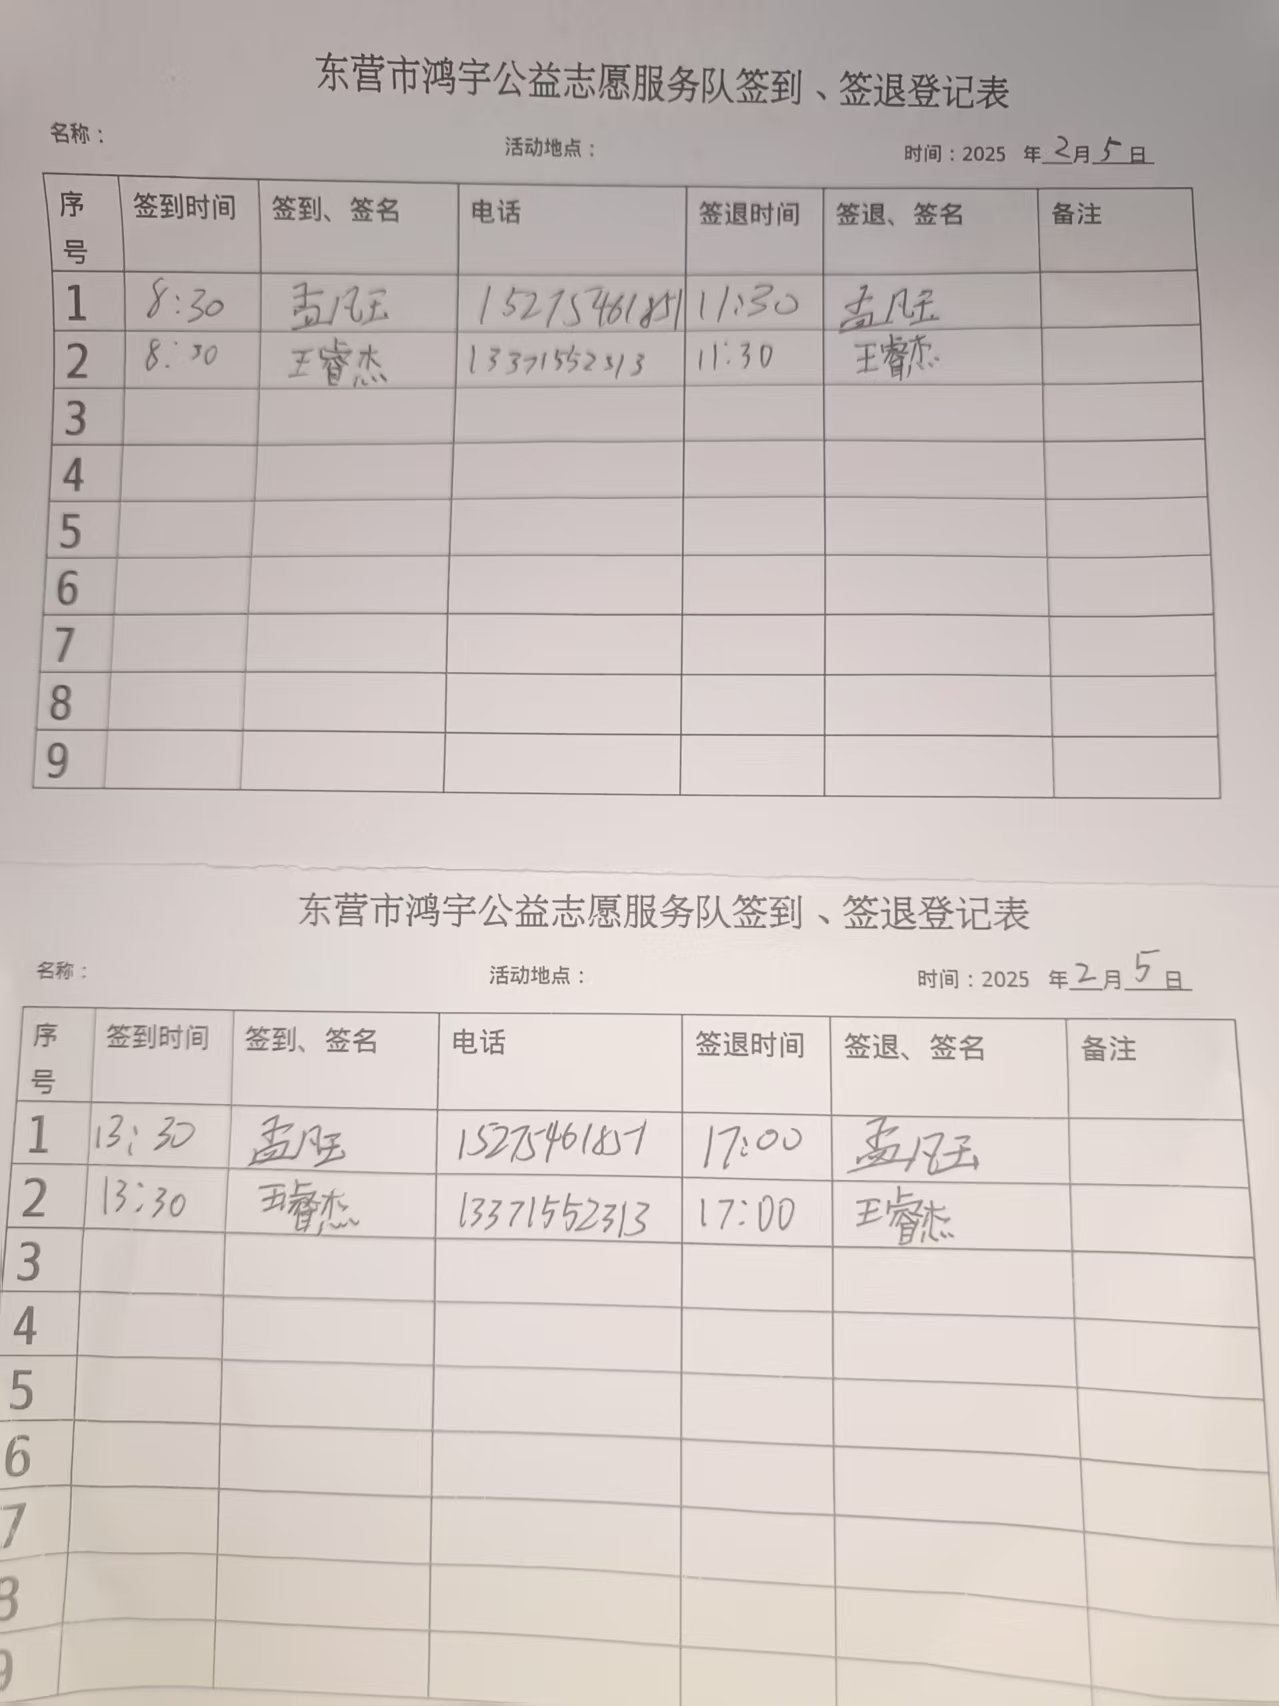 东营市鸿宇公益志愿服务队签到、签退登记表
名称： 活动地点： 时间：2025 年2月5日
序号 签到时间 签到、签名 电话 签退时间 签退、签名 备注
1 8:30 孟凡玉 15275461851 11:30 孟凡玉
2 8:30 王睿杰 13371552313 11:30 王睿杰
3
4
5
6
7
8
9
东营市鸿宇公益志愿服务队签到、签退登记表
名称： 活动地点： 时间：2025 年2月5日
序号 签到时间 签到、签名 电话 签退时间 签退、签名 备注
1 13:30 孟凡玉 15275461851 17:00 孟凡玉
2 13:30 王睿杰 13371552313 17:00 王睿杰
3
4
5
6
7
8
9